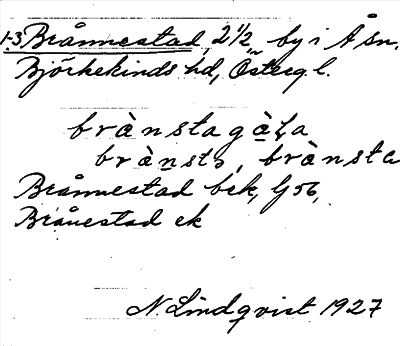 1-3 Brånnestad, 2 1/2 m, by i Å sn.
Björkekinds hd, Östergl.
brànstagàļa
brànstə, brànsta
Brånnestad bek, G 56,
Brånestad ek
N. Lindqvist 1927